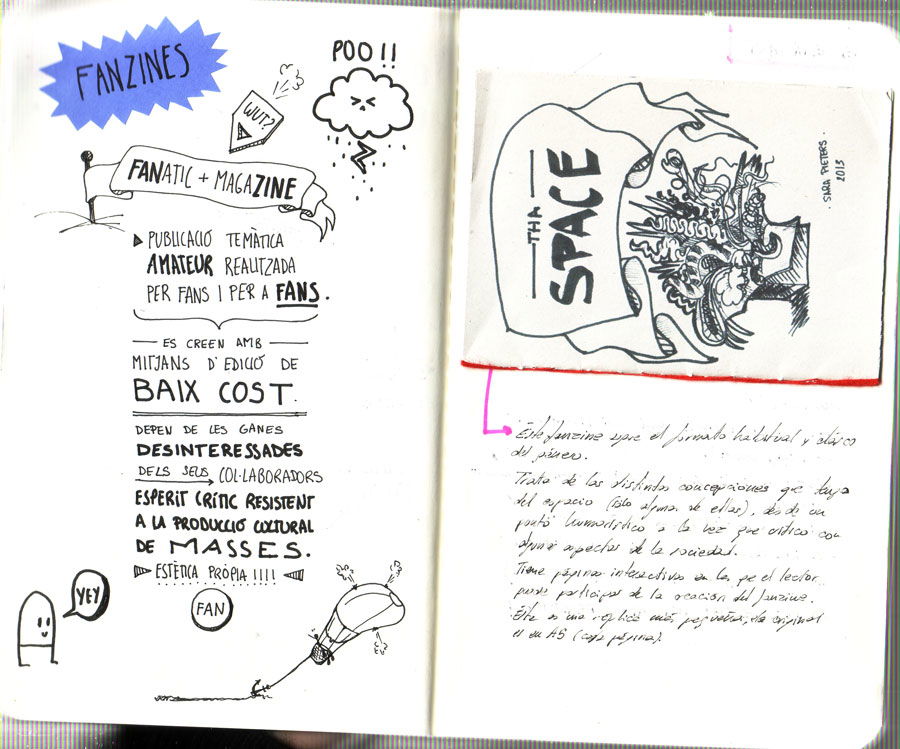 FANZINES
POO!!
WUT?
FANATIC + MAGAZINE
PUBLICACIÓ TEMÀTICA
AMATEUR REALITZADA
PER FANS I PER A FANS.
ES CREEN AMB
MITJANS D'EDICIÓ DE
BAIX COST.
DEPEN DE LES GANES
DESINTERESSADES
DELS SEUS COL·LABORADORS
ESPERIT CRÍTIC RESISTENT
A LA PRODUCCIÓ CULTURAL
DE MASSES.
ESTÈTICA PRÒPIA !!!!
FAN
YEY
THA
SPACE
· SARA PIETERS ·
2013
Este fanzine sigue el formato habitual y clásico
del género.
Trata de las distintas concepciones que tengo
del espacio (sólo alguna de ellas), desde un
punto humorístico a la vez que crítico con
algunos aspectos de la sociedad.
Tiene páginas interactivas en las que el lector
puede participar de la creación del fanzine.
Este es una réplica más pequeña, la original
es en A5 (cada página).